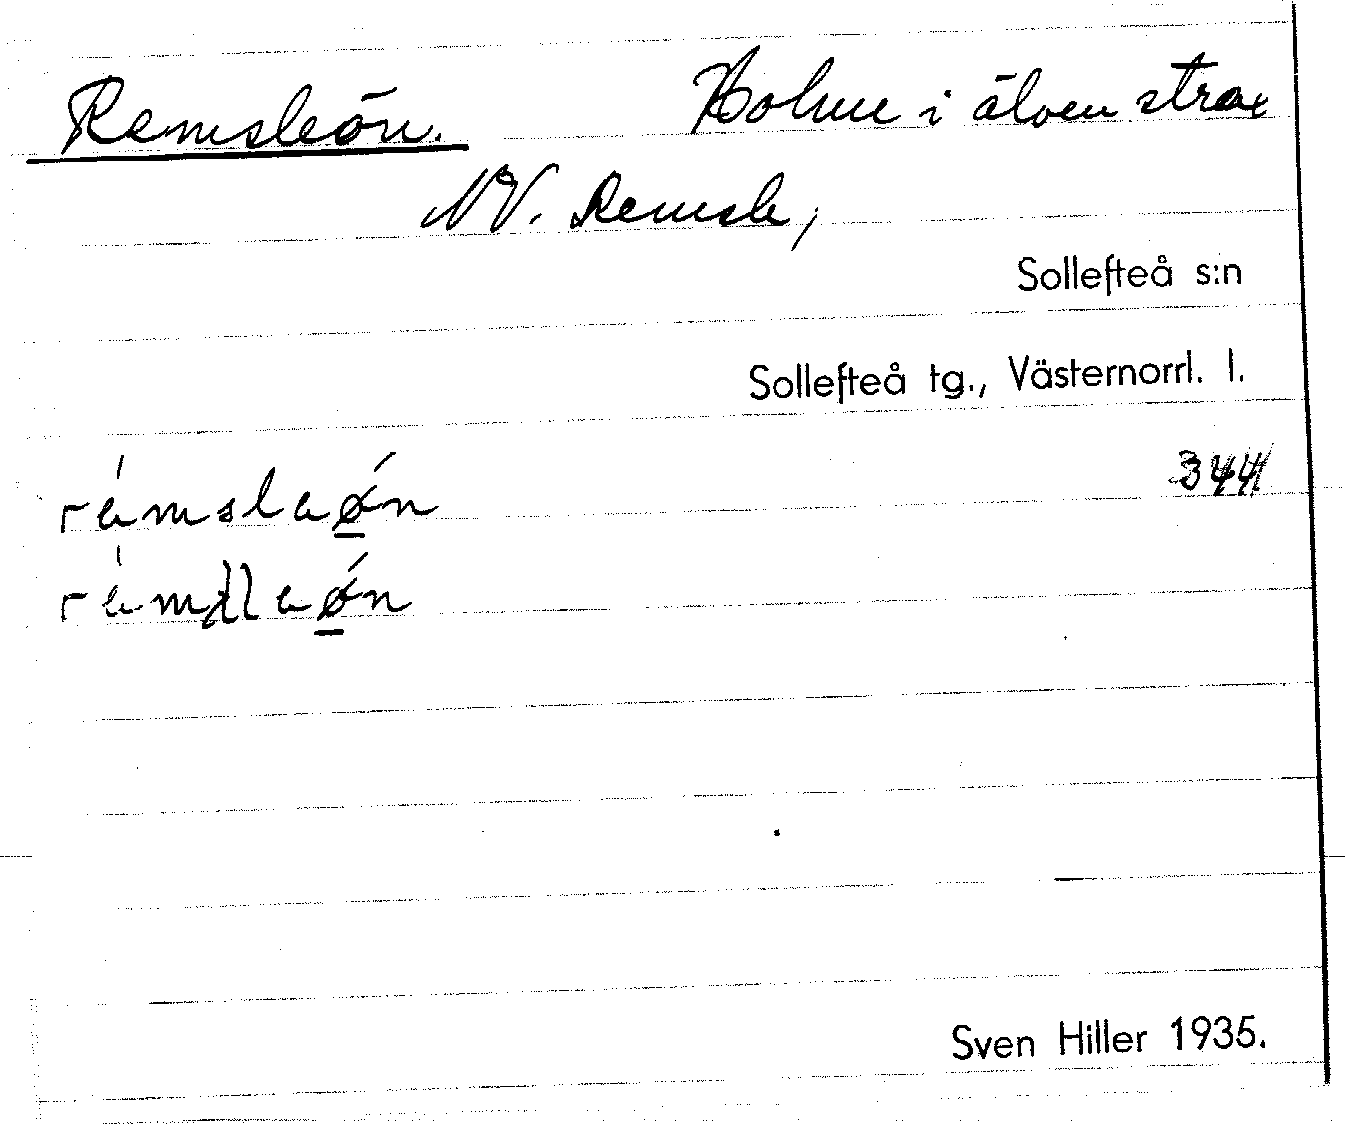 Remsleön. Holme i älven strax
NV. Remsle,
Sollefteå s:n
Sollefteå tg., Västernorrl. l.
344
Sven Hiller 1935.